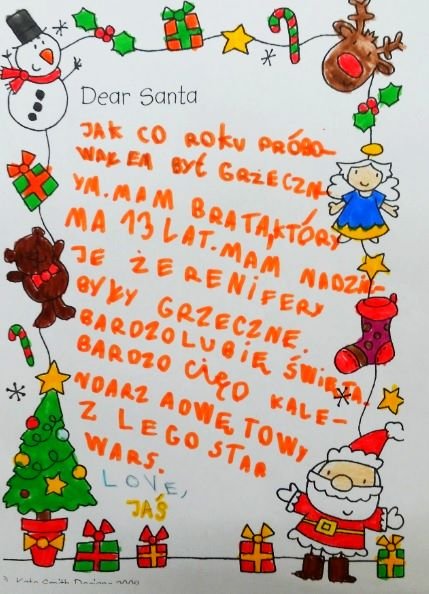 Dear Santa
JAK CO ROKU PRÓBO-
WAŁEM BYĆ GRZECZN-
YM. MAM BRATA, KTÓRY
MA 13 LAT. MAM NADZIE-
JE ŻE RENIFERY
BYŁY GRZECZNE.
BARDZO LUBIĘ ŚWIĘTA.
BARDZO CIĘO KALE-
NDARZ ADWĘTOWY
Z LEGO STAR
WARS.
LOVE,
JAŚ